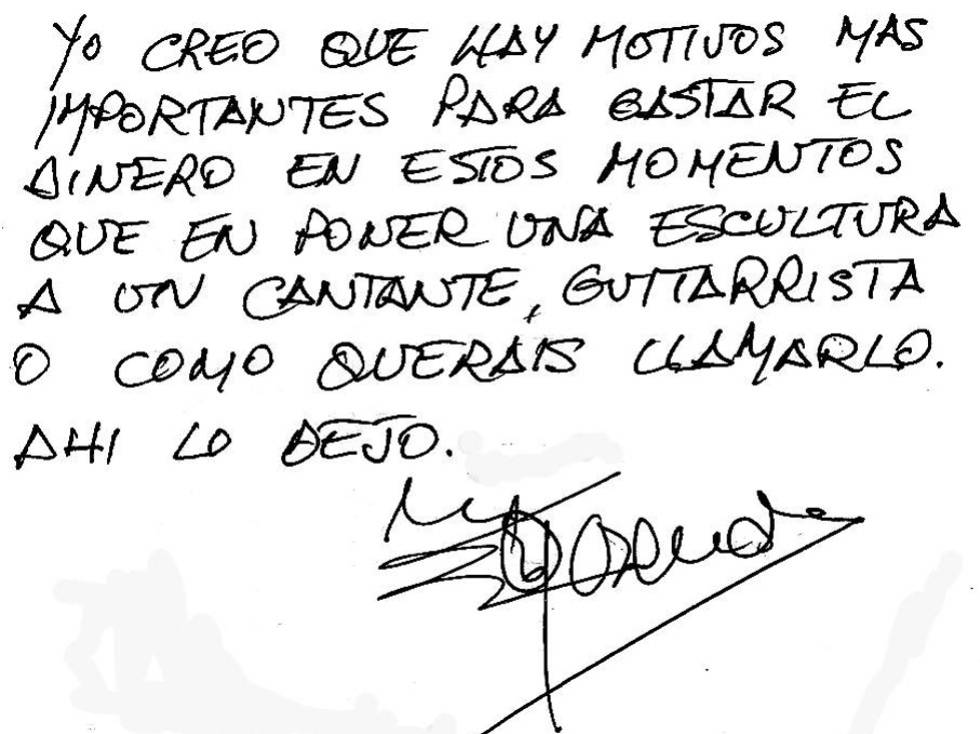 YO CREO QUE HAY MOTIVOS MAS
IMPORTANTES PARA GASTAR EL
DINERO EN ESTOS MOMENTOS
QUE EN PONER UNA ESCULTURA
A UN CANTANTE, GUITARRISTA
O COMO QUERAIS LLAMARLO.
AHI LO DEJO.